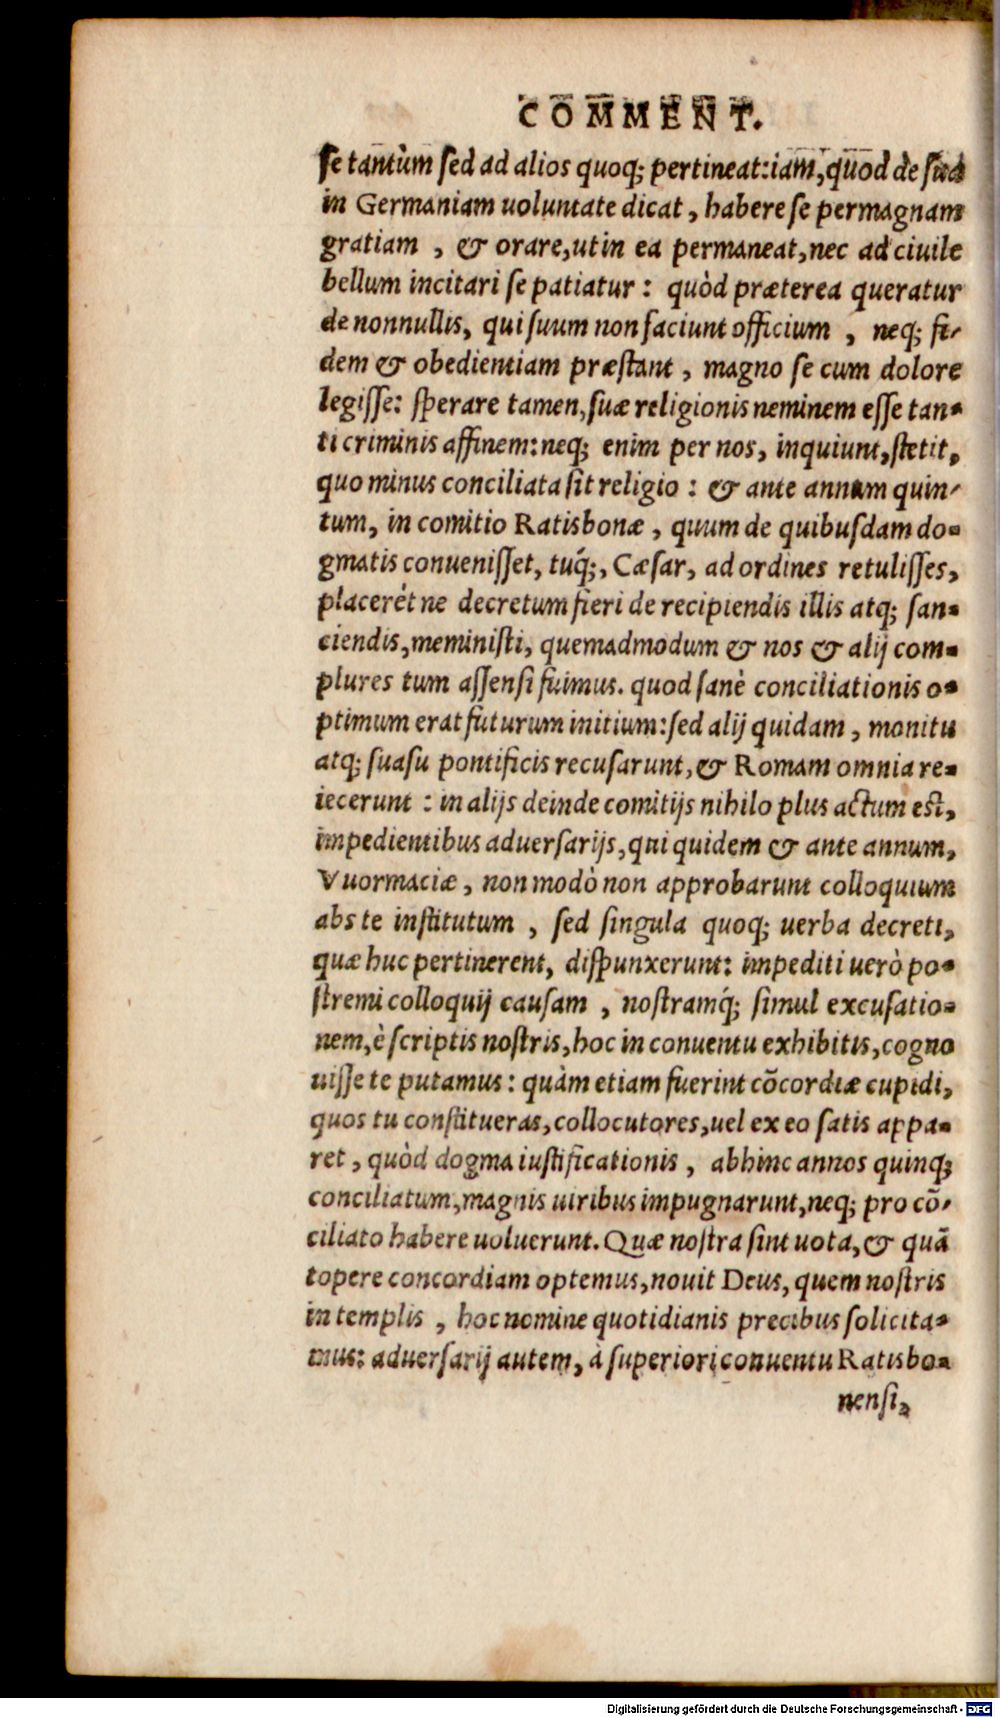 COMMENT.
se tantùm sed ad alios quoq; pertineat: iam, quod de sua
in Germaniam uoluntate dicat, habere se permagnam
gratiam, & orare, ut in ea permaneat, nec ad ciuile
bellum incitari se patiatur: quòd præterea queratur
de nonnullis, qui suum non faciunt officium, neq; fi-
dem & obedientiam præstant, magno se cum dolore
legisse: sperare tamen, suæ religionis neminem esse tan-
ti criminis affinem: neq; enim per nos, inquiunt, stetit,
quo minus conciliata sit religio: & ante annum quin-
tum, in comitio Ratisbonæ, quum de quibusdam do-
gmatis conuenisset, tuq́;, Cæsar, ad ordines retulisses,
placerét ne decretum fieri de recipiendis illis atq; san-
ciendis, meministi, quemadmodum & nos & alij com-
plures tum assensi fuimus. quod sanè conciliationis o-
ptimum erat futurum initium: sed alij quidam, monitu
atq; suasu pontificis recusarunt, & Romam omnia re-
iecerunt: in alijs deinde comitijs nihilo plus actum est,
impedientibus aduersarijs, qui quidem & ante annum,
Vuormaciæ, non modò non approbarunt colloquium
abs te institutum, sed singula quoq; uerba decreti,
quæ huc pertinerent, dispunxerunt: impediti uerò po-
stremi colloquij causam, nostramq́; simul excusatio-
nem, è scriptis nostris, hoc in conuentu exhibitis, cogno
uisse te putamus: quàm etiam fuerint cōcordiæ cupidi,
quos tu constitueras, collocutores, uel ex eo satis appa-
ret, quòd dogma iustificationis, abhinc annos quinq;
conciliatum, magnis uiribus impugnarunt, neq; pro cō-
ciliato habere uoluerunt. Quæ nostra sint uota, & quā
topere concordiam optemus, nouit Deus, quem nostris
in templis, hoc nomine quotidianis precibus solicita-
mus: aduersarij autem, à superiori conuentu Ratisbo-
nensi,
Digitalisierung gefördert durch die Deutsche Forschungsgemeinschaft - DFG